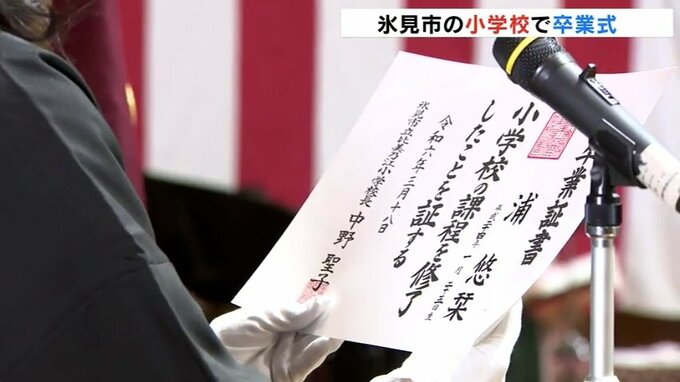 氷見市の小学校で卒業式
卒業証書
浦 悠栞
平成二十四年一月二十五日生
小学校の課程を修了
したことを証する
令和六年三月十八日
氷見市立比美乃江小学校長 中野 聖子